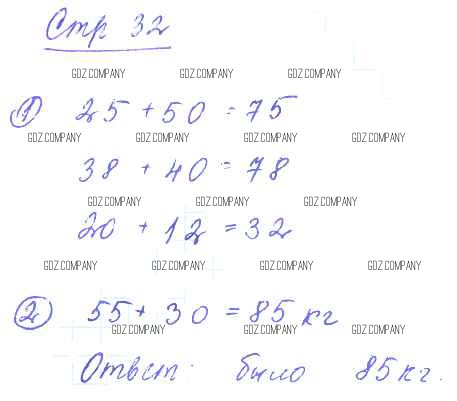 Стр 32
GDZ.COMPANY GDZ.COMPANY GDZ.COMPANY
① 25 + 50 = 75
GDZ.COMPANY GDZ.COMPANY GDZ.COMPANY GDZ.COMPANY
38 + 40 = 78
GDZ.COMPANY GDZ.COMPANY GDZ.COMPANY
20 + 12 = 32
GDZ.COMPANY GDZ.COMPANY GDZ.COMPANY GDZ.COMPANY
② 55 + 30 = 85 кг
GDZ.COMPANY GDZ.COMPANY GDZ.COMPANY
Ответ: было 85 кг.